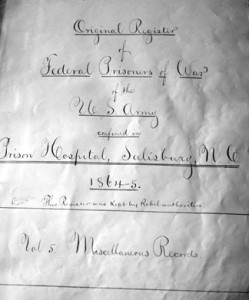 Original Register
of
Federal Prisoners of War
of the
U S Army
confined in
Prison Hospital, Salisbury, N C
1864-5.
This Register was kept by Rebel authorities.
Vol 5. Miscellaneous Records